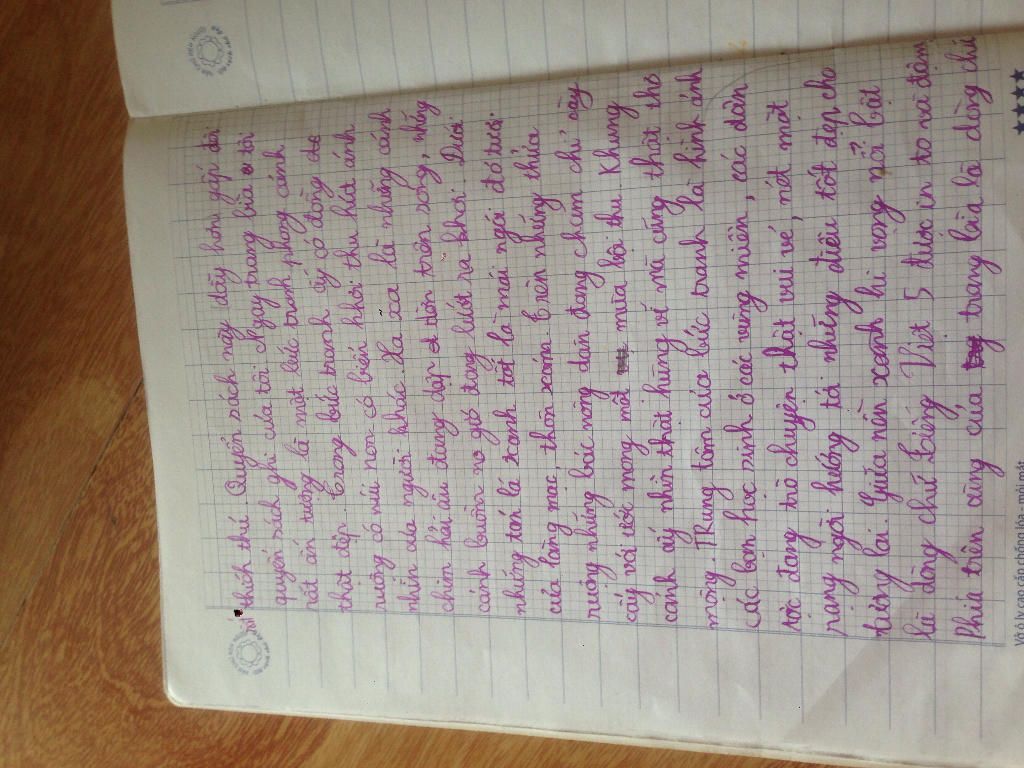 thích thú. Quyển sách này dầy hơn gấp đôi
quyển sách ghi của tôi. Ngay trang bìa tôi
rất ấn tượng là một bức tranh phong cảnh
thật đẹp. Trong bức tranh ấy có đồng
ruộng có núi non có biển khơi thu hút ánh
nhìn của người khác. Xa xa là những cánh
chim hải âu đung dập dồn trên sóng, những
cánh buồm no gió đang lướt ra khơi. Dưới
những tán lá xanh tốt là mái ngói đỏ tươi
của làng mạc, thôn xóm. Trên những thửa
ruộng những bác nông dân đang chăm chỉ cày
cấy với ước mong một mùa bội thu. Khung
cảnh ấy nhìn thật hùng vĩ mà cũng thật thơ
mộng. Trung tâm của bức tranh là hình ảnh
các bạn học sinh ở các vùng miền, các dân
tộc đang trò chuyện thật vui vẻ, nét mặt
rạng ngời hướng tới những điều tốt đẹp cho
tương lai. Giữa nền xanh hi vọng nổi bật
là dòng chữ Tiếng Việt 5 được in to và đậm
Phía trên cùng của trang bìa là dòng chữ
Vở ô ly cao cấp chống lóa - mỏi mắt